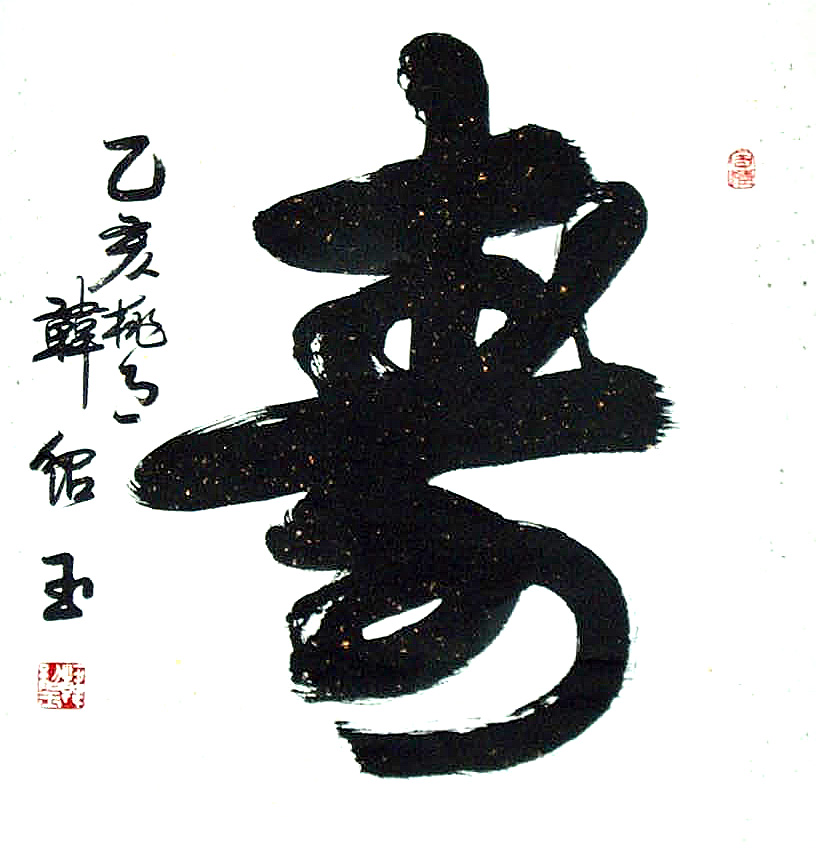 壽
乙亥桃月
韓紹玉